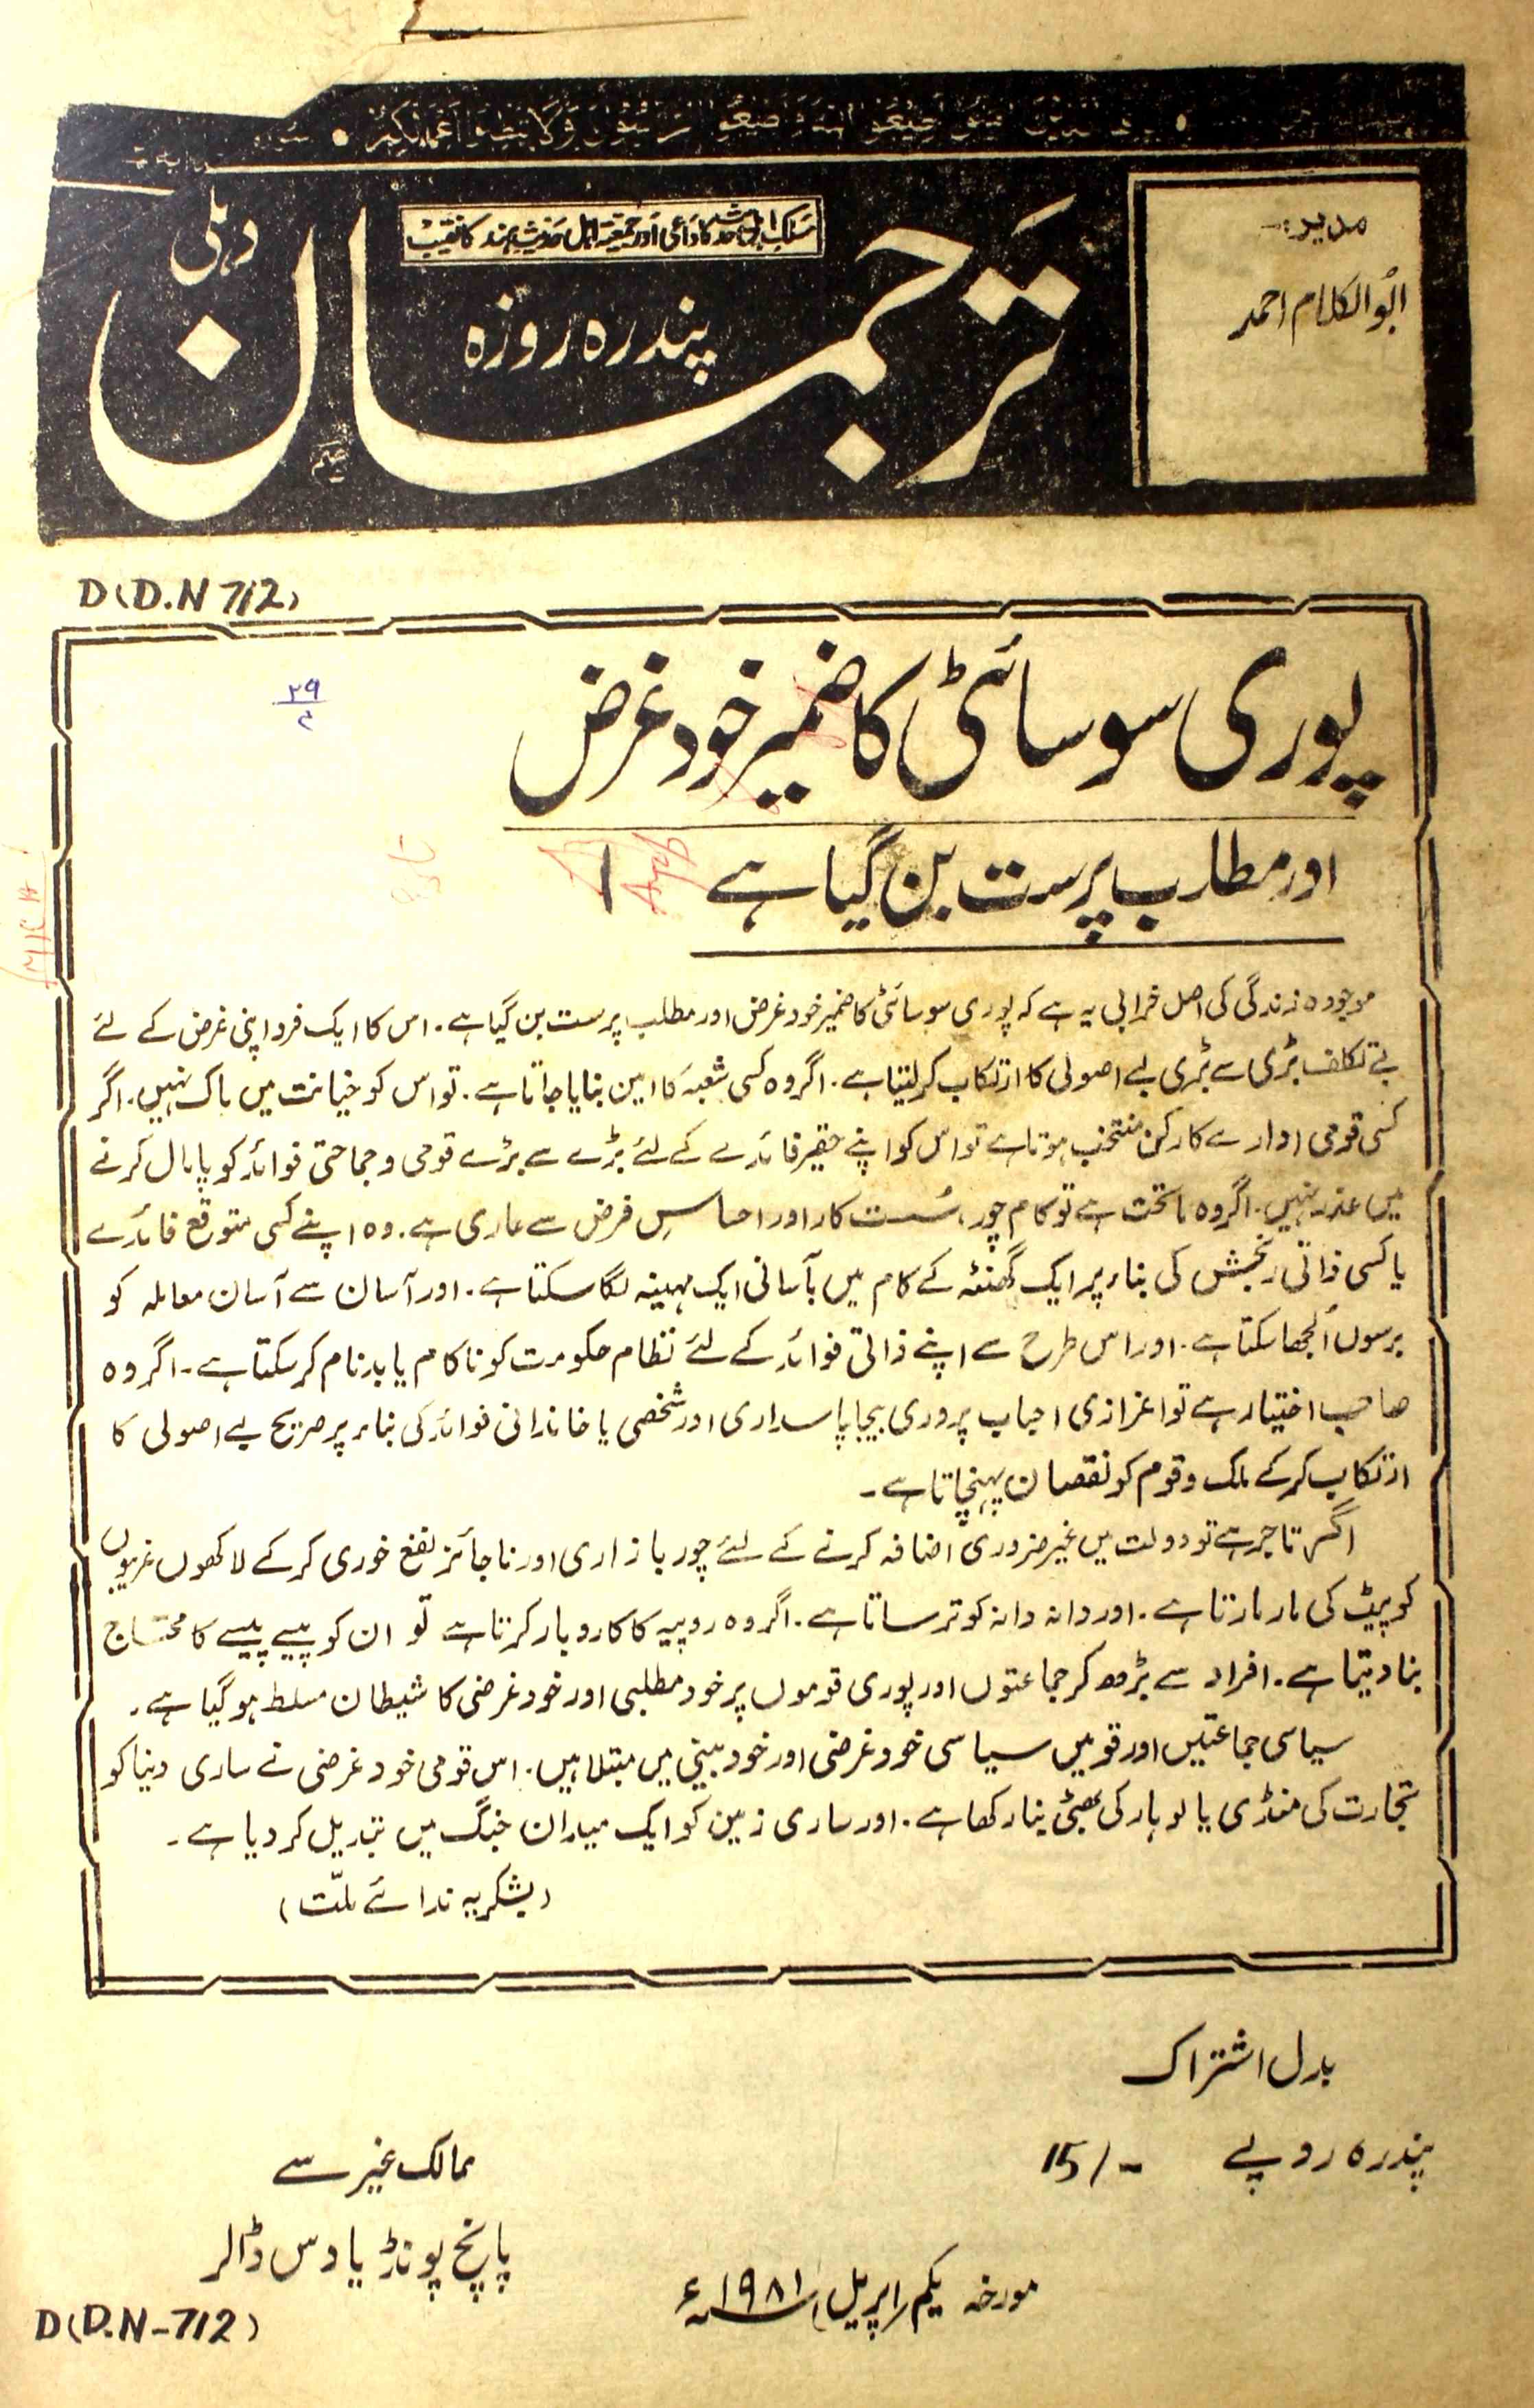 مدیر:-
ابُوالکلام احمد
مسلک اہل حدیث کا داعی اور جمعیۃ اہل حدیث ہند کا نقیب
ترجمان
پندرہ روزہ
دہلی
D(D.N 712)
۲۹
پوری سوسائٹی کا ضمیر خود غرض
اور مطلب پرست بن گیا ہے
موجودہ زندگی کی اصل خرابی یہ ہے کہ پوری سوسائٹی کا ضمیر خود غرض اور مطلب پرست بن گیا ہے. اس کا ایک فرد اپنی غرض کے لئے
بے تکلف بڑی سے بڑی بے اصولی کا ارتکاب کر لیتا ہے. اگر وہ کسی شعبہ کا امین بنایا جاتا ہے. تو اس کو خیانت میں باک نہیں. اگر
کسی قومی ادارے کا رکن منتخب ہوتا ہے تو اس کو اپنے حقیر فائدے کے لئے بڑے سے بڑے قومی و جماعتی فوائد کو پامال کرنے
میں عذر نہیں. اگر وہ ماتحت ہے تو کام چور، سُست کار اور احساسِ فرض سے عاری ہے. وہ اپنے کسی متوقع فائدے
یا کسی ذاتی رنجش کی بناء پر ایک گھنٹہ کے کام میں بآسانی ایک مہینہ لگا سکتا ہے. اور آسان سے آسان معاملہ کو
برسوں اُلجھا سکتا ہے. اور اس طرح سے اپنے ذاتی فوائد کے لئے نظام حکومت کو ناکام یا بدنام کر سکتا ہے- اگر وہ
صاحب اختیار ہے تو اعزازی احباب پروری بیجا پاسداری اور شخصی یا خاندانی فوائد کی بناء پر صریح بے اصولی کا
ارتکاب کر کے ملک و قوم کو نقصان پہنچاتا ہے۔
اگر تاجر ہے تو دولت میں غیر ضروری اضافہ کرنے کے لئے چور بازاری اور ناجائز نفع خوری کر کے لاکھوں غریبوں
کو پیٹ کی مار مارتا ہے. اور دانہ دانہ کو ترساتا ہے. اگر وہ روپیہ کا کاروبار کرتا ہے تو ان کو پیسے پیسے کا محتاج
بنا دیتا ہے. افراد سے بڑھ کر جماعتوں اور پوری قوموں پر خود مطلبی اور خود غرضی کا شیطان مسلط ہو گیا ہے.
سیاسی جماعتیں اور قومیں سیاسی خود غرضی اور خود بینی میں مبتلا ہیں. اس قومی خود غرضی نے ساری دنیا کو
تجارت کی منڈی یا لوہار کی بھٹی بنا رکھا ہے. اور ساری زمین کو ایک میدان جنگ میں تبدیل کر دیا ہے۔
(بشکریہ ندائے ملّت)
بدل اشتراک
پندرہ روپے 15/-
ممالک غیر سے
پانچ پونڈ یا دس ڈالر
مورخہ یکم/اپریل/۱۹۸۱ء
D(D.N-712)